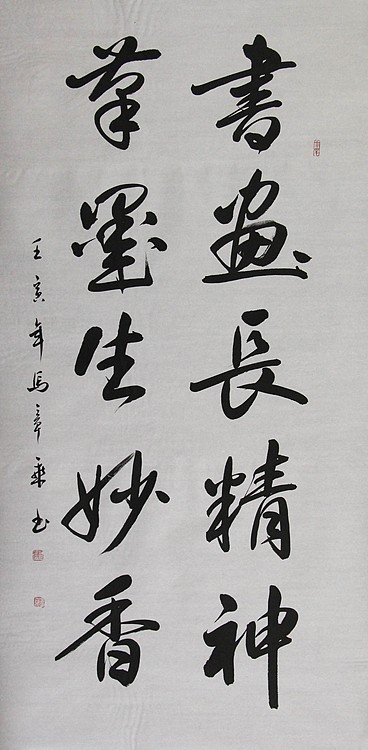 書畫長精神
筆墨生妙香
壬寅年馬章乘书